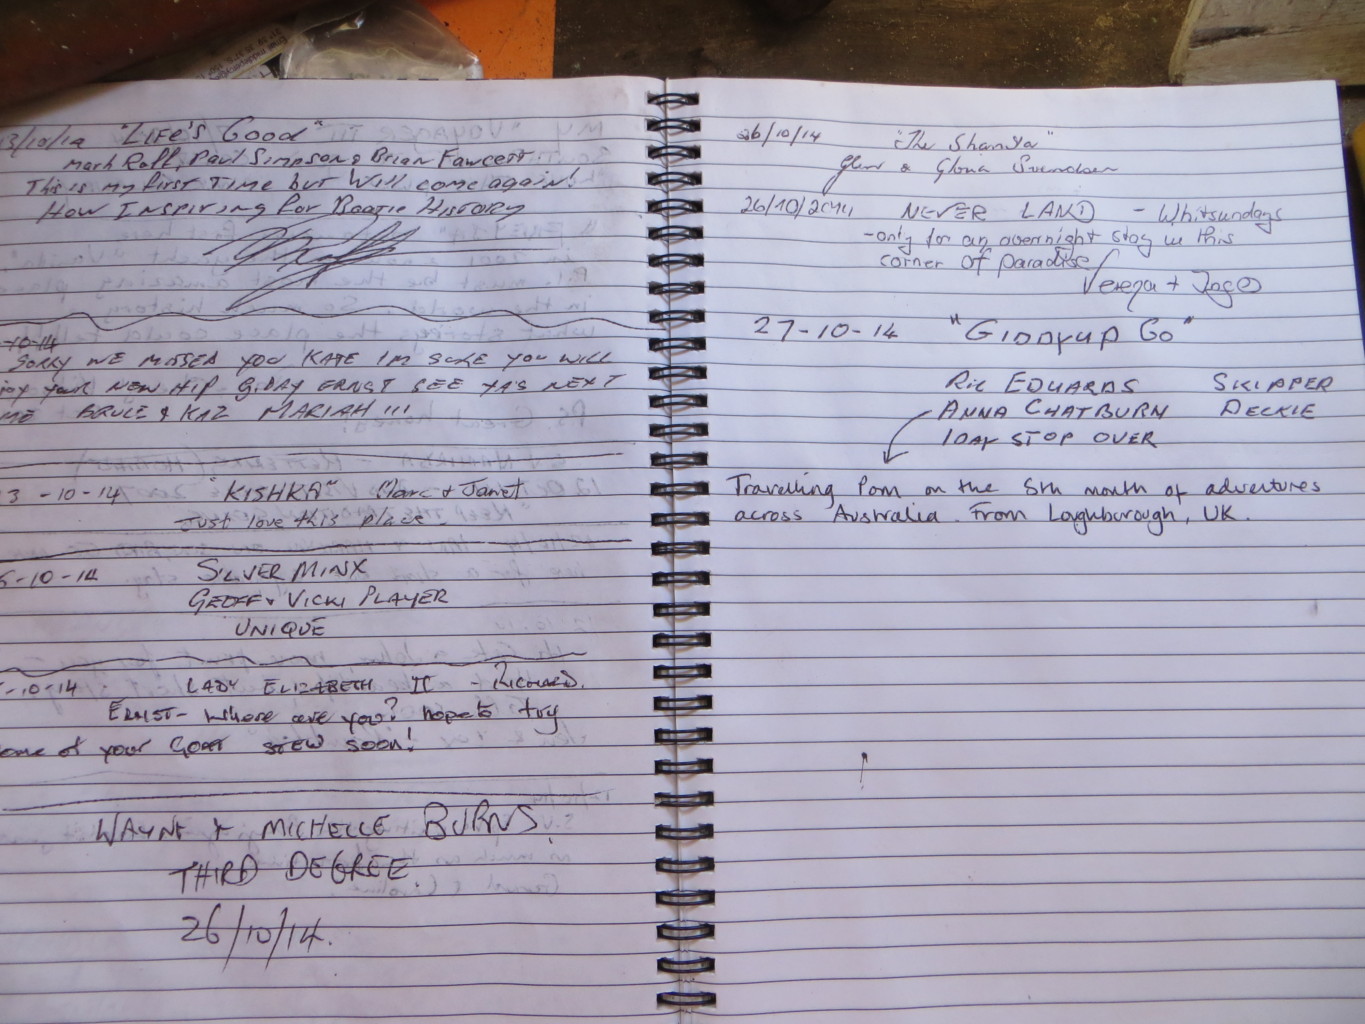 3/10/14 "LIFE'S GOOD"
Mark Raff, Paul Simpson & Brian Fawcett
This is my first Time but Will come again!
How Inspiring for Boatie History
-10-14
SORRY WE MISSED YOU KATE I'M SURE YOU WILL
joy your NEW HIP G.DAY ERNST SEE YA'S NEXT
ME BRUCE & KAZ MARIAH !!!
3-10-14 "KISHKA" Marc + Janet
Just love this place.
5-10-14 SILVER MINX
GEOFF & VICKI PLAYER
UNIQUE
-10-14 LADY ELIZABETH II - RICHARD.
ERNST- where are you? hope to try
ome of your Goat STEW soon!
WAYNE + MICHELLE BURNS.
THIRD DEGREE.
26/10/14.
26/10/14 "The Shanya"
Glen & Gloria Svendsen
26/10/2014 NEVER LAND - Whitsundays
-only for an overnight stay in this
corner of paradise
Verena +
27-10-14 "GIDDYUP GO"
RIC EDWARDS SKIPPER
ANNA CHATBURN DECKIE
1 DAY STOP OVER
Travelling Pom on the 5th month of adventures
across Australia. From Loughborough, UK.